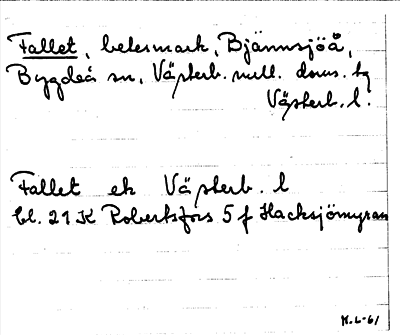 Fallet, betesmark, Bjännsjöå,
Bygdeå sn, Västerb. mell. doms. tg
Västerb. l.
Fallet ek Västerb. l
bl. 21 K Robertsfors 5 f Hacksjömyran
K.L-61